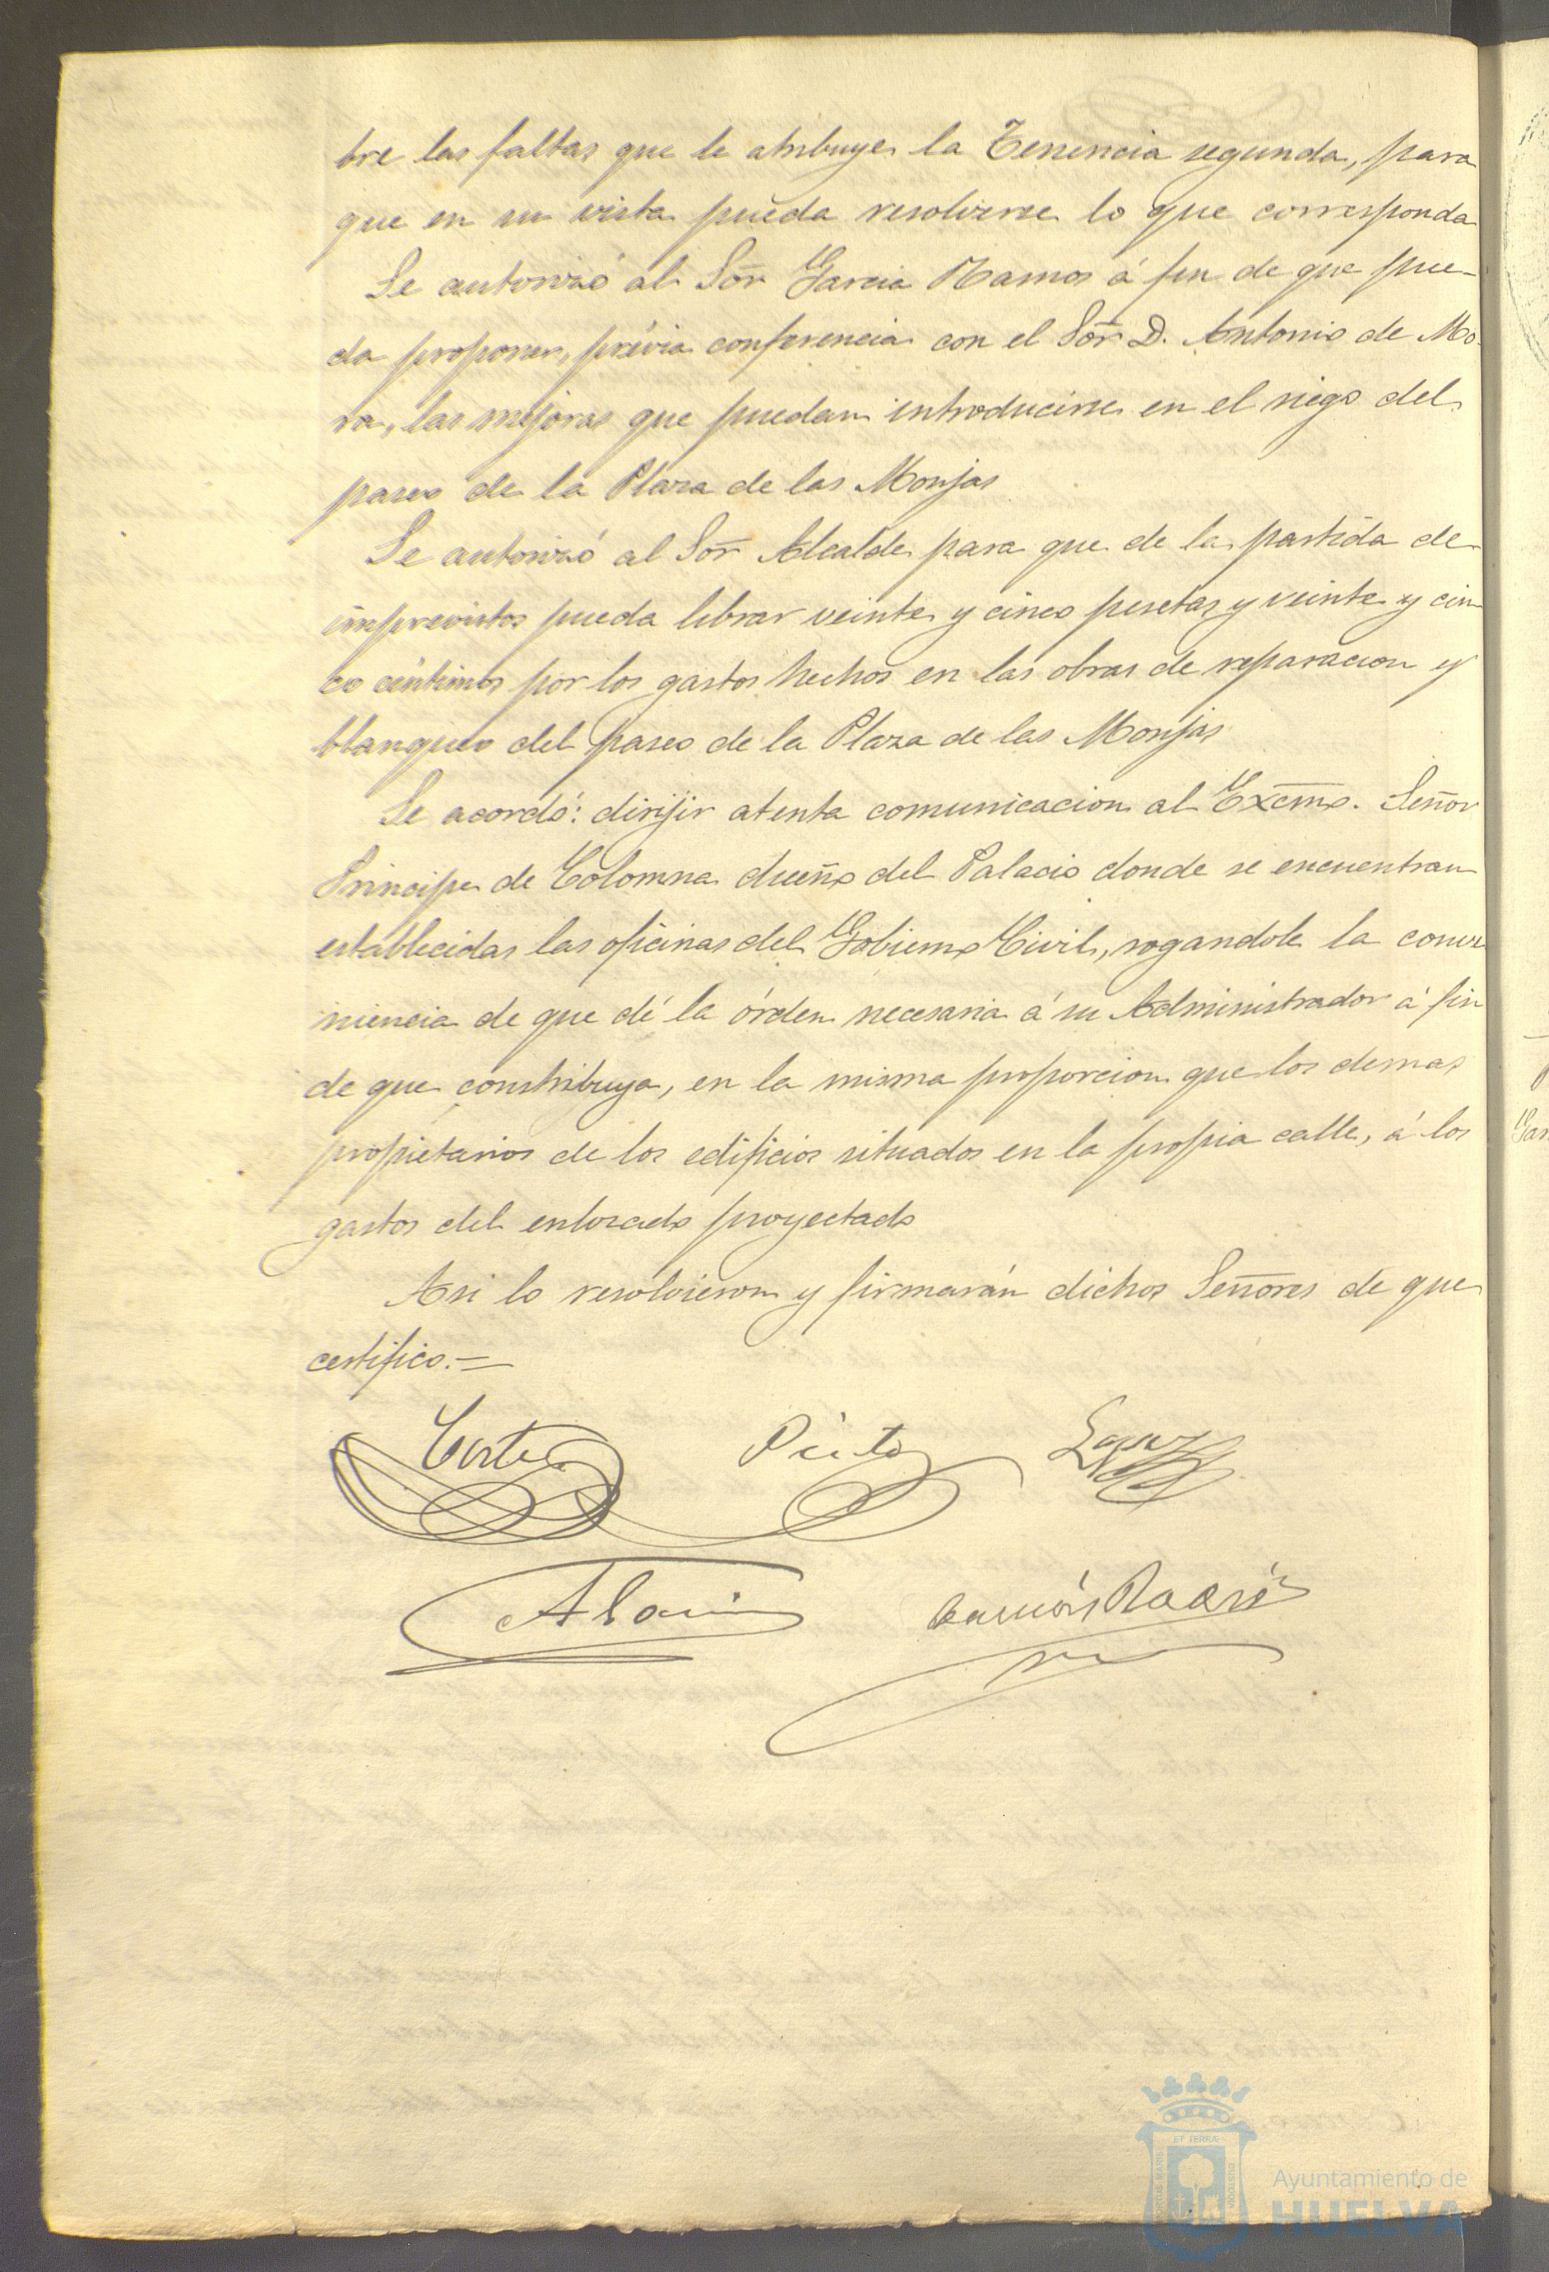 bre las faltas que le atribuye la Tenencia segunda, para
que en su vista pueda resolverse lo que corresponda
Se autorizó al Sor Garcia Ramos á fin de que pue-
da proponer, prévia conferencia con el Sor D. Antonio de Mo-
ra, las mejoras que puedan introducirse en el riego del
paseo de la Plaza de las Monjas
Se autorizó al Sor Alcalde para que de la partida de
imprevistos pueda librar veinte y cinco pesetas y veinte y cin
co céntimos por los gastos hechos en las obras de reparacion y
blanqueo del paseo de la Plaza de las Monjas
Se acordó: dirijir atenta comunicacion al Excmo. Señor
Principe de Colomna dueño del Palacio donde se encuentran
establecidas las oficinas del Gobierno Civil, rogandole la conve
niencia de que dé la órden necesaria á su Administrador á fin
de que constribuya, en la misma proporcion que los demas
propietarios de los edificios situados en la propia calle, á los
gastos del enlosado proyectado
Asi lo resolvieron y firmarán dichos Señores de que
certifico.=
Pinto
Lopez
ET TERRÆ
Ayuntamiento de
HUELVA